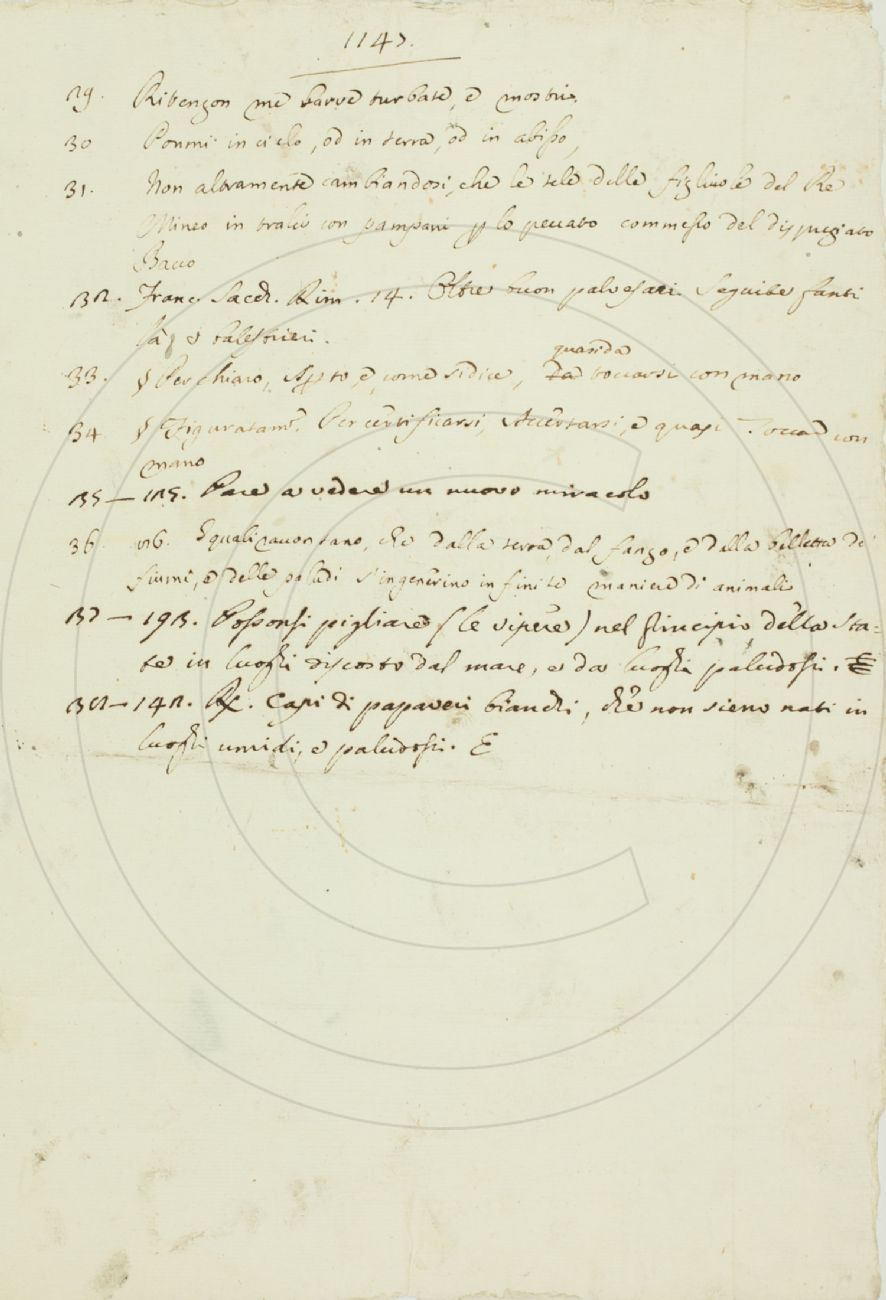 1147.
29. Ritengon me larve turbate, e mostri.
30 Ponmi in cielo, od in terra, od in abisso,
31. Non altramente cambiandosi, che le tele delle figliuole del Re
Mineo in tralci con pampani p lo peccato commesso del dispregiato
Bacco
32. Franc. Sacch. Rim. 14. Oltre buon palvesari. Seguite fanti
e balestrieri.
quanda
33. § Per chiaro, e, come si dice, Da toccarsi con mano
34 § Figuratam. Per certificarsi, Accertarsi, e quasi Toccar con
mano
35 — 115. Pare a vedere un nuovo miracolo
36. E quali raccontano, che dalla terra, dal fango, e dalla belletta de'
fiumi, e delle paludi s'ingenerino infinite maniere di animali
37 — 193. Possonsi pigliare (le vipere) nel principio della sta-
te in luoghi discosto dal mare, e da luoghi paludosi. E
38 — 142. Rx. Capi di papaveri bianchi, che non sieno nati in
luoghi umidi, e paludosi. E